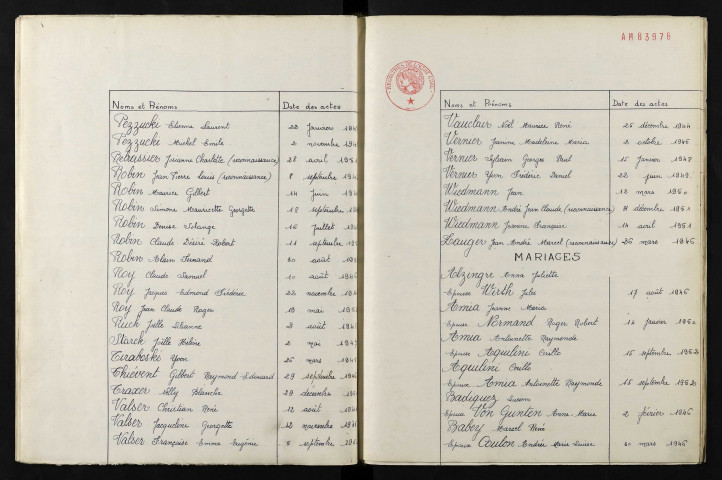 Noms et Prénoms Date des actes
Pezzucki Etienne Laurent 22 janvier 194
Pezzucki Michel Emile 2 novembre 194
Retraissier Jeanne Charlotte (reconnaissance) 28 avril 195
Robin Jean Pierre Louis (reconnaissance) 8 septembre 194
Robin Maurice Gilbert 14 juin 194
Robin Simone Mauricette Georgette 18 septembre 19
Robin Denise Solange 16 juillet 19
Robin Claude Désiré Robert 11 septembre 19
Robin Alain Fernand 20 août 19
Roy Claude Samuel 10 août 194
Roy Jacques Edmond Frédéric 22 novembre 194
Roy Jean Claude Roger 19 mai 195
Ruch Joëlle Lilianne 3 août 194
Starck Joëlle Hélène 2 mai 194
Tiraboski Yvon 26 mars 194
Thiévent Gilbert Raymond Edouard 29 septembre 194
Traxer Nelly Blanche 29 décembre 19
Valser Christian René 12 août 194
Valser Jacqueline Georgette 12 novembre 194
Valser Françoise Emma Eugénie 5 septembre 195
AM83978
Noms et Prénoms Date des actes
Vauclair Noël Maurice René 25 décembre 1944
Vernier Janine Madeleine Maria 2 octobre 1946
Vernier Sylvain Georges Paul 15 janvier 1947
Vernier Yvon Frédéric Daniel 22 juin 1949
Wiedmann Jean 12 mars 1950
Wiedmann André Jean Claude (reconnaissance) 8 décembre 1951
Wiedmann Jeanine Françoise 14 avril 1951
Zauger Jean André Marcel (reconnaissance) 26 mars 1946
MARIAGES
Alzingre Anna Juliette
épouse Wirth Jules 17 août 1946
Amia Jeanne Maria
épouse Normand Roger Robert 14 janvier 1950
Amia Antoinette Raymonde
épouse Aquilini Cirillo 15 septembre 1952
Aquilini Cirillo
époux Amia Antoinette Raymonde 15 septembre 1952
Badiquez Lucien
époux Von Gunten Anne Marie 2 février 1946
Babey Marcel René
époux Coulon Andrée Marie Louise 30 mars 1946